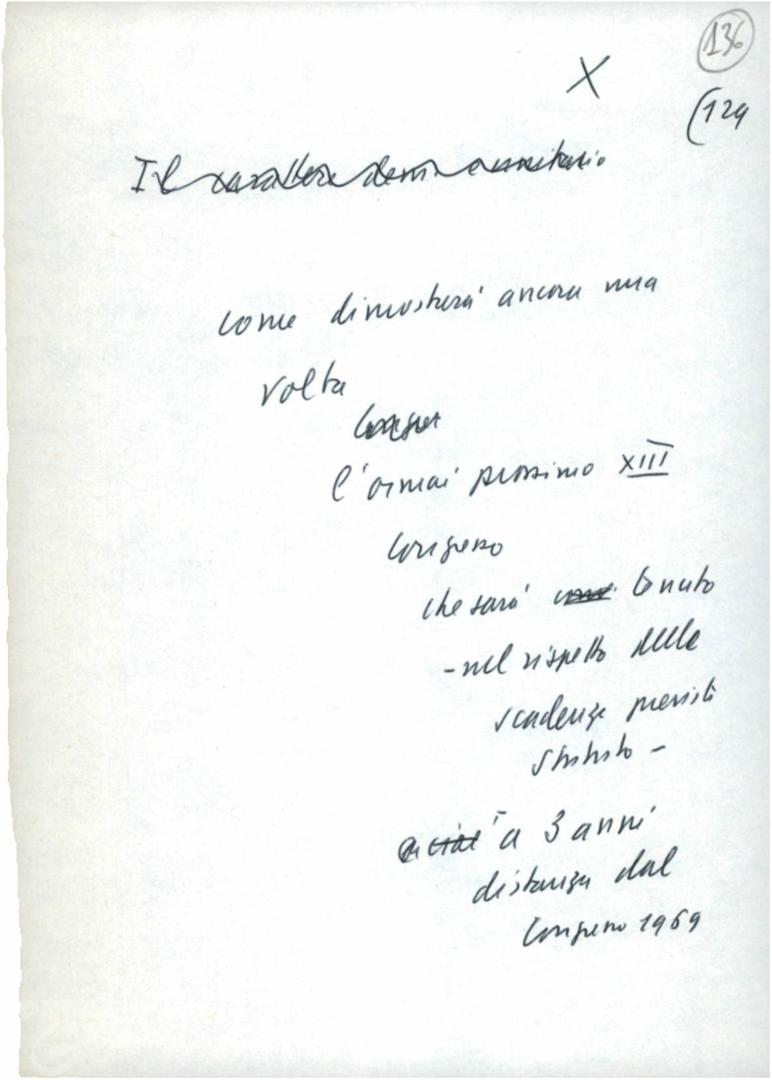 136
X
(124
Il carattere
come dimostrerà ancora una
volta
l'ormai prossimo XIII
Congresso
che sarà tenuto
- nel rispetto delle
scadenze previste
Statuto -
a 3 anni
distanza dal
Congresso 1969